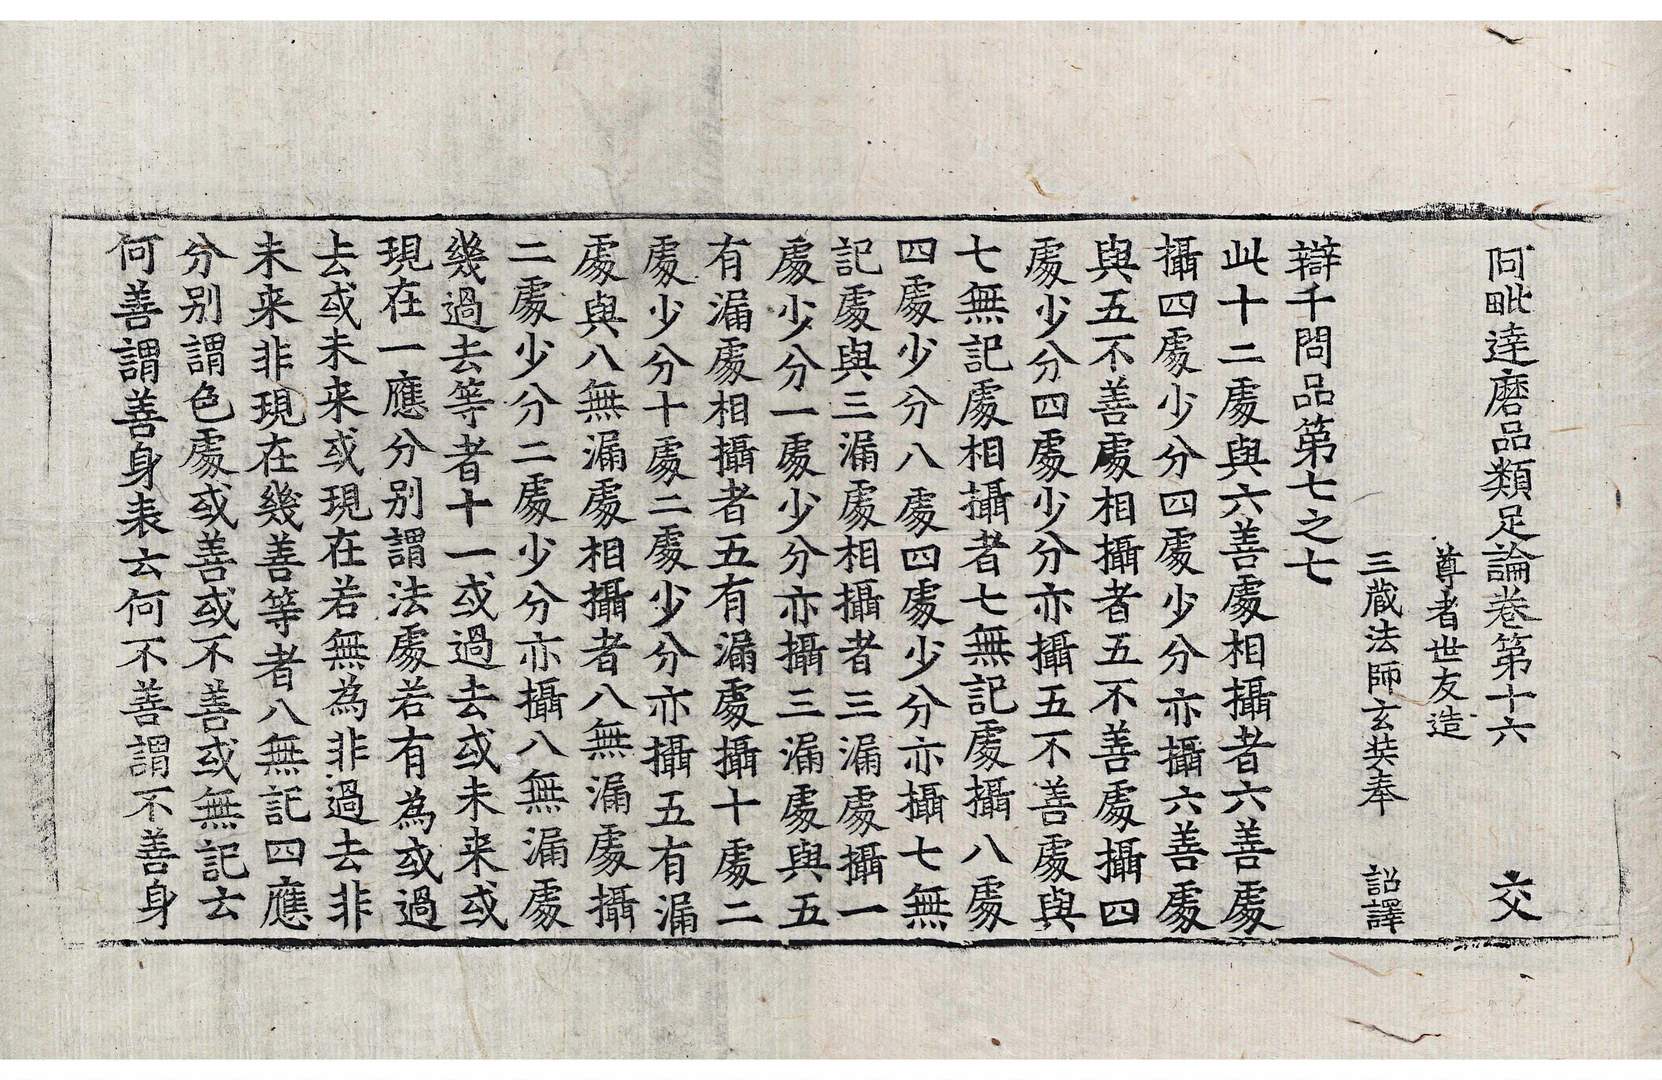 阿毗達磨品類足論卷第十六 交
尊者世友造
三藏法師玄奘奉 詔譯
辯千問品第七之七
此十二處與六善處相攝者六善處
攝四處少分四處少分亦攝六善處
與五不善處相攝者五不善處攝四
處少分四處少分亦攝五不善處與
七無記處相攝者七無記處攝八處
四處少分八處四處少分亦攝七無
記處與三漏處相攝者三漏處攝一
處少分一處少分亦攝三漏處與五
有漏處相攝者五有漏處攝十處二
處少分十處二處少分亦攝五有漏
處與八無漏處相攝者八無漏處攝
二處少分二處少分亦攝八無漏處
幾過去等者十一或過去或未来或
現在一應分別謂法處若有為或過
去或未来或現在若無為非過去非
未来非現在幾善等者八無記四應
分別謂色處或善或不善或無記云
何善謂善身表云何不善謂不善身